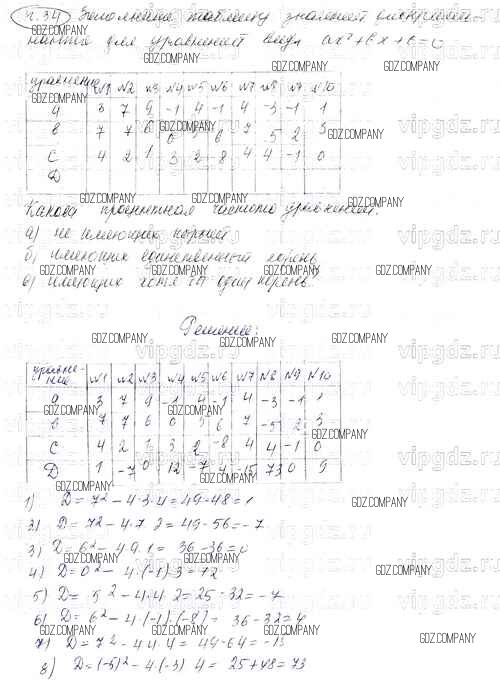 ч.34) Заполните таблицу значений дискриминанта для уравнений вида ax²+bx+c=0
уравнение №1 №2 №3 №4 №5 №6 №7 №8 №9 №10
a 3 7 9 -1 4 -1 4 -3 -1 1
b 7 7 6 0 5 6 7 -5 2 3
c 4 2 1 3 2 -8 4 4 -1 0
D
Какова процентная частота уравнений:
а) не имеющих корней
б) имеющих единственный корень
в) имеющих хотя бы один корень?
Решение:
уравнение №1 №2 №3 №4 №5 №6 №7 №8 №9 №10
a 3 7 9 -1 4 -1 4 -3 -1 1
b 7 7 6 0 5 6 7 -5 2 3
c 4 2 1 3 2 -8 4 4 -1 0
D 1 -7 0 12 -7 4 -15 73 0 9
1) D = 7² - 4·3·4 = 49 - 48 = 1
2) D = 7² - 4·7·2 = 49 - 56 = -7
3) D = 6² - 4·9·1 = 36 - 36 = 0
4) D = 0² - 4·(-1)·3 = 12
5) D = 5² - 4·4·2 = 25 - 32 = -7
6) D = 6² - 4·(-1)·(-8) = 36 - 32 = 4
7) D = 7² - 4·4·4 = 49 - 64 = -15
8) D = (-5)² - 4·(-3)·4 = 25 + 48 = 73
GDZ.COMPANY
vipgdz.ru